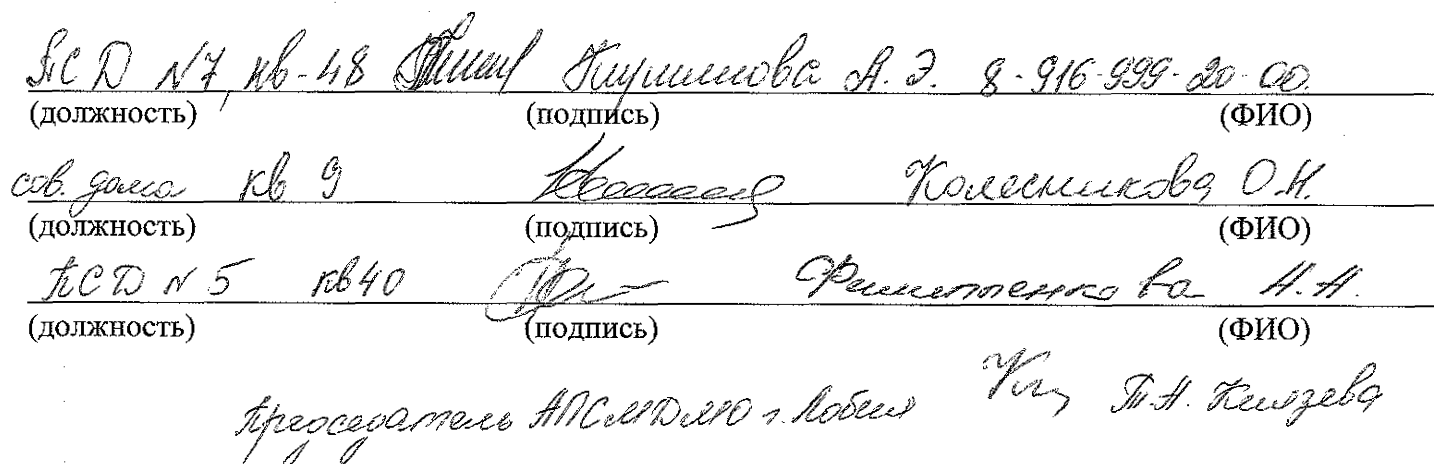 ПСД №7, кв-48 А.Э. 8-916-999-20-00.
(должность) (подпись) (ФИО)
сов. дома кв 9 Колесникова О.Н.
(должность) (подпись) (ФИО)
ПСД №5 кв40 Филиппенкова Н.Н.
(должность) (подпись) (ФИО)
Председатель АПСМДМО г. Лобня Т.Н. Князева